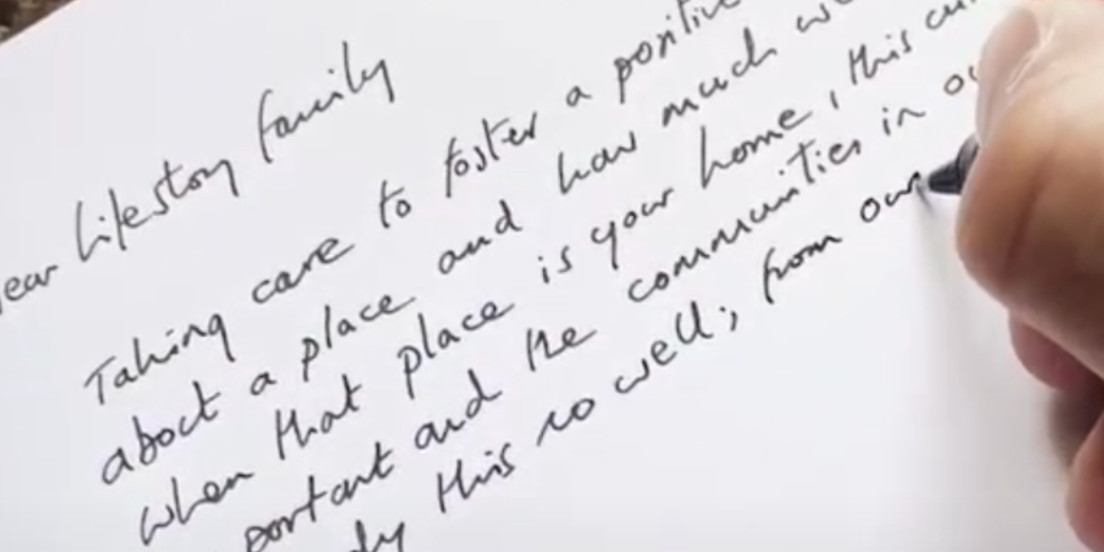 ear Lifestory family
Taking care to foster a positive
about a place and how much we
when that place is your home, this cu
portant and the communities in ou
dy this so well; from our